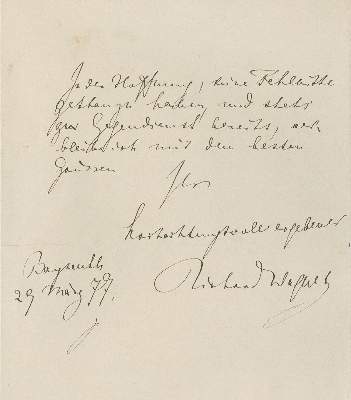 In der Hoffnung, keine Fehlbitte
gethan zu haben, und stets
zu Gegendienst bereit, ver-
bleibe ich mit den besten
Grüssen
Ihr
hochachtungsvoll ergebener
Bayreuth
29 März 77.
Richard Wagner